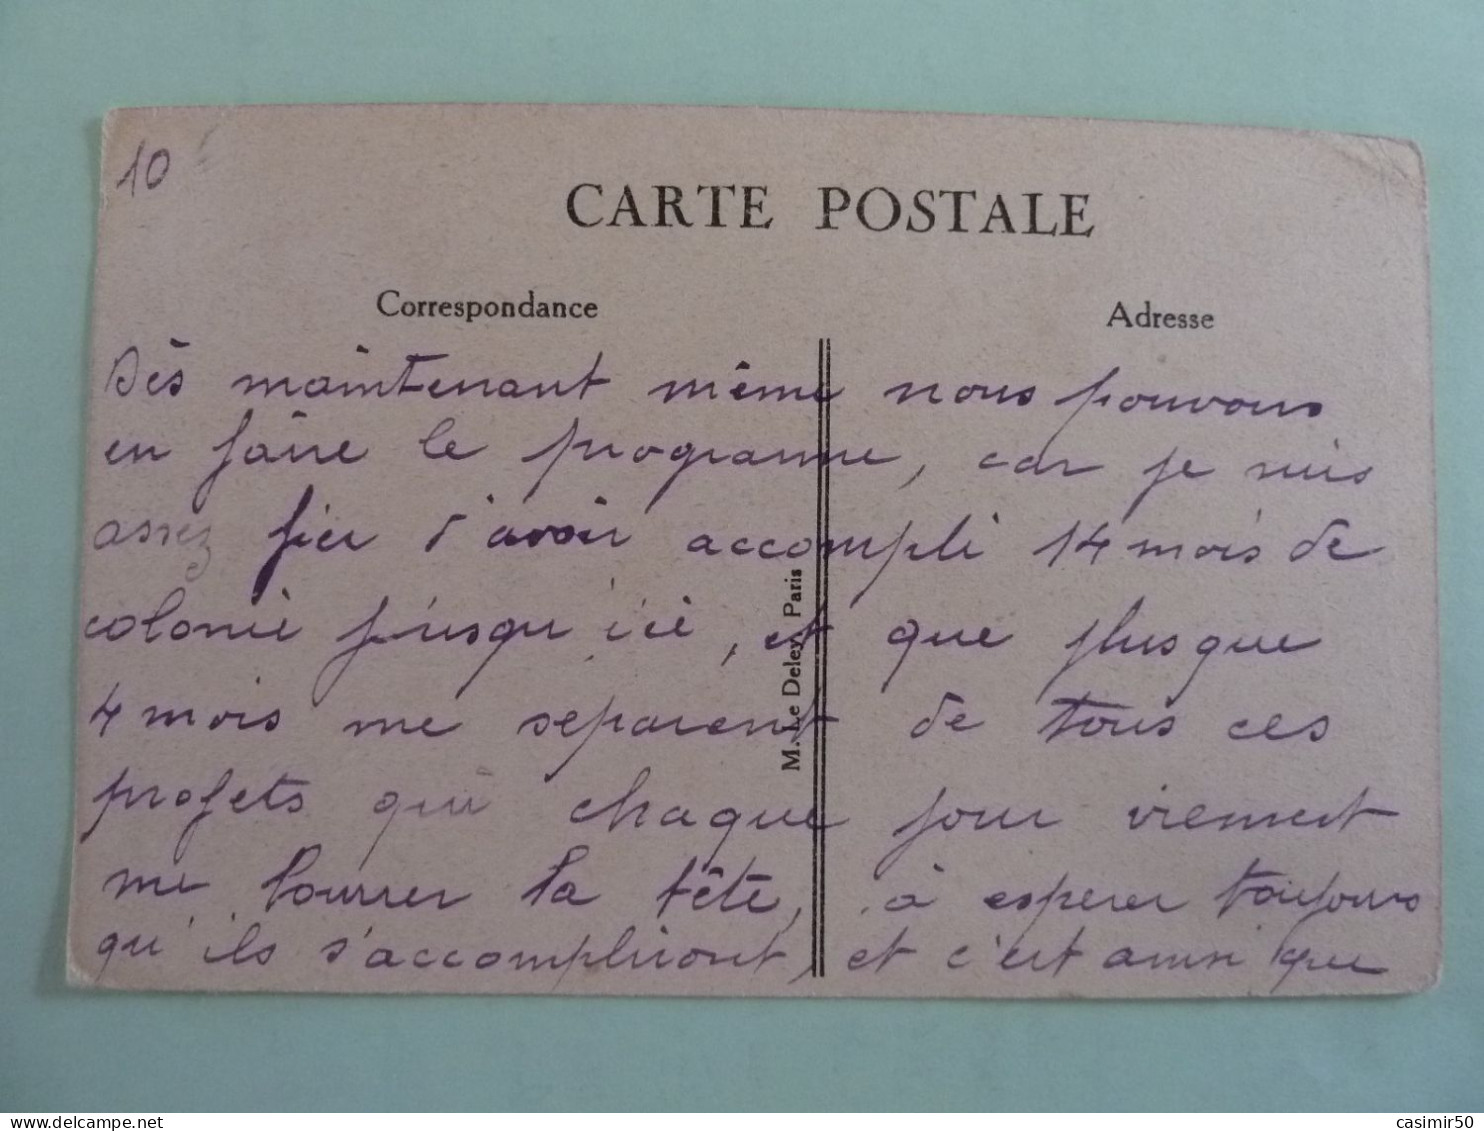 10
CARTE POSTALE
Correspondance
Adresse
Dès maintenant même nous pouvons
en faire le programme, car je suis
assez fier d'avoir accompli 14 mois de
colonie jusqu'ici, et que plus que
4 mois me separent de tous ces
projets qui chaque jour viennent
me bourrer la tête, à esperer toujours
qu'ils s'accompliront, et c'est ainsi que
M. Le Deley, Paris
delcampe.net
casimir50